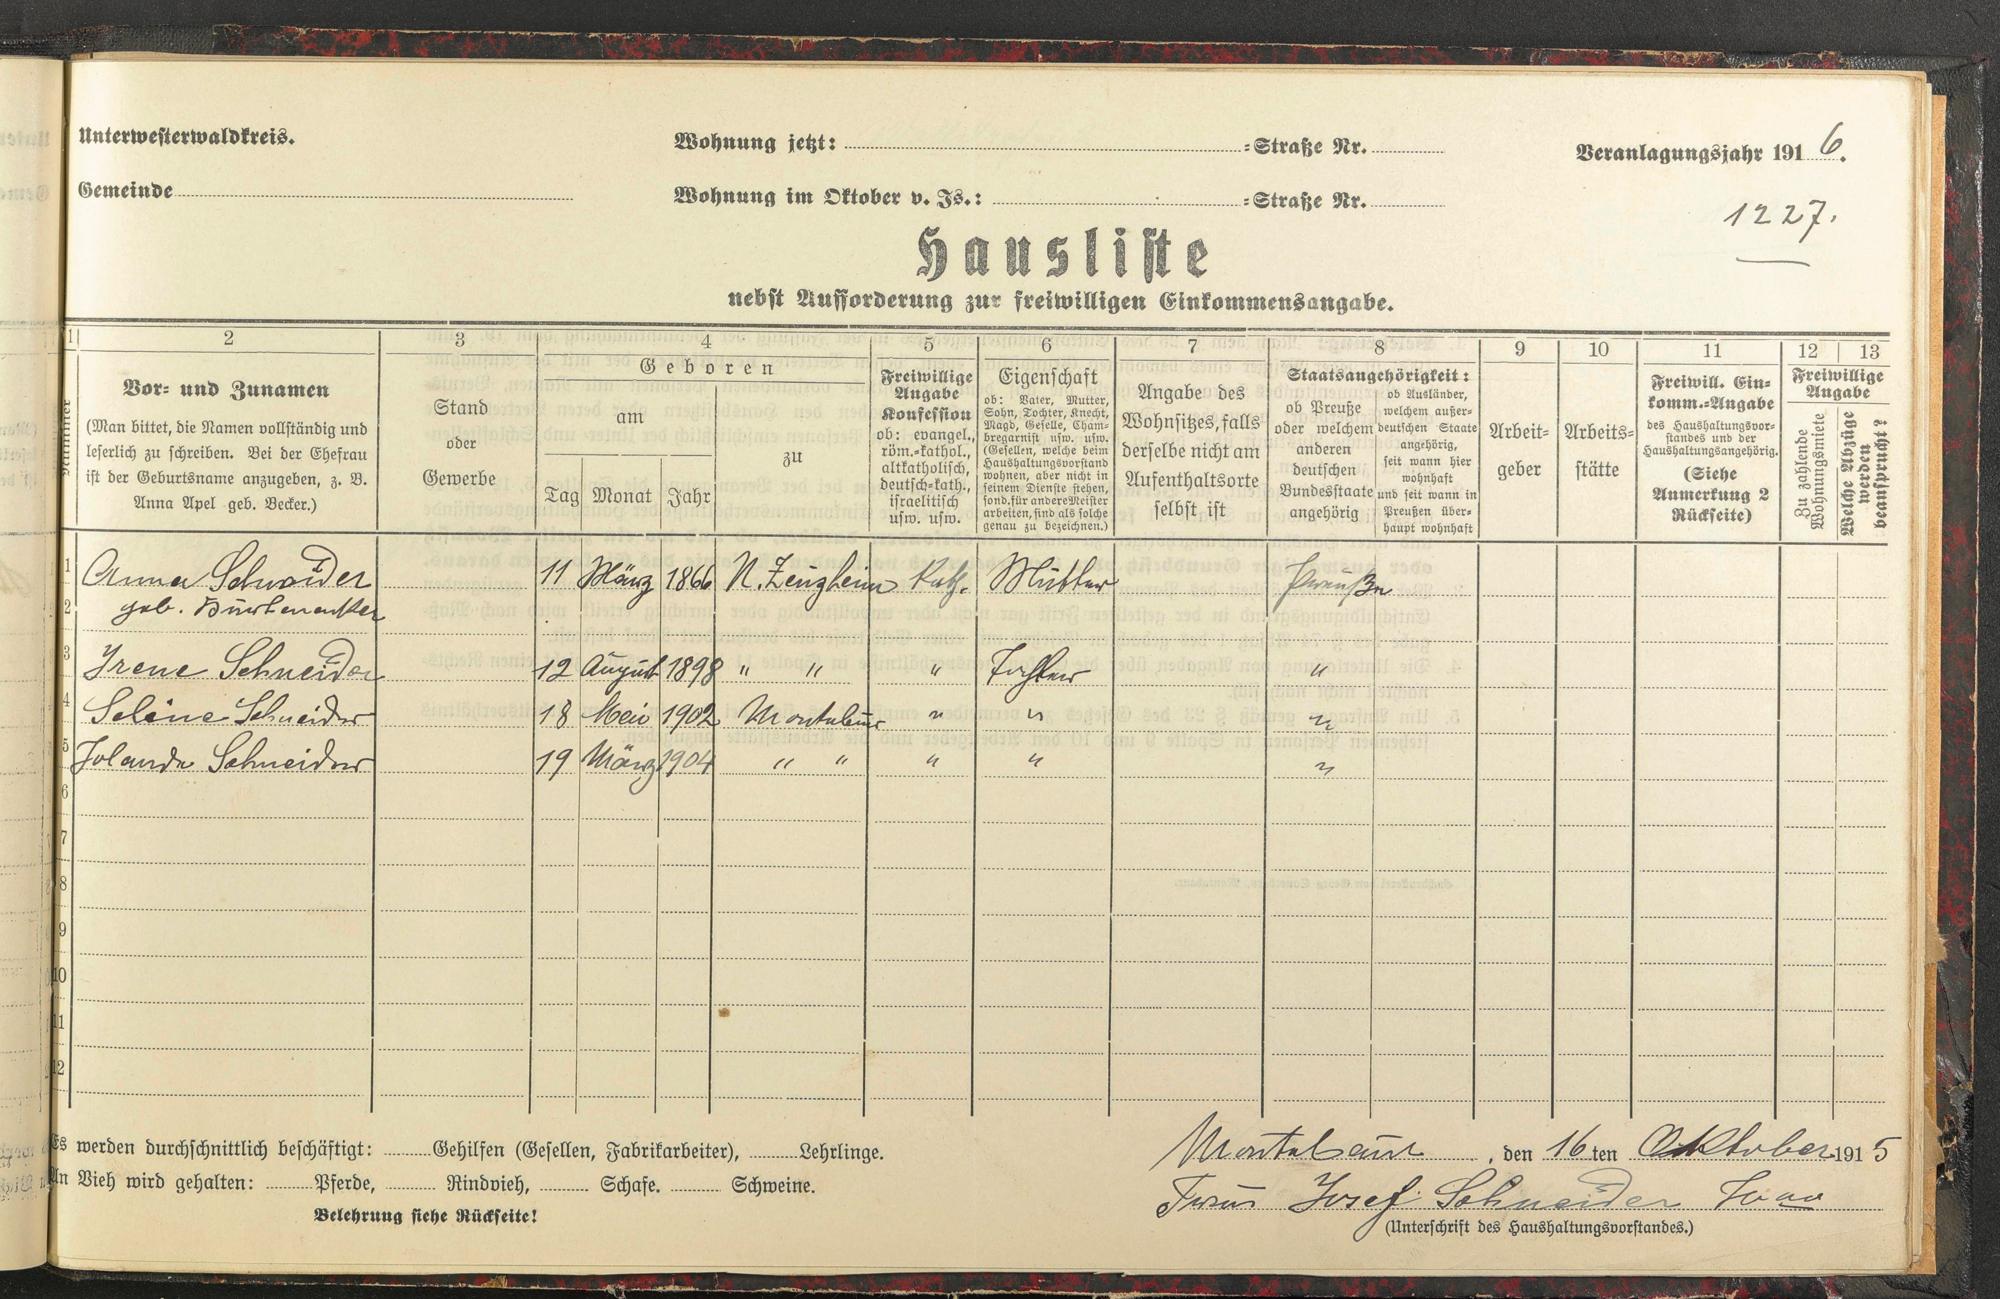 Unterwesterwaldkreis.
Wohnung jetzt: =Straße Nr.
Veranlagungsjahr 1916.
Gemeinde
Wohnung im Oktober v. Js.: =Straße Nr.
1227.
Hausliste
nebst Aufforderung zur freiwilligen Einkommensangabe.
1
Nummer
2
Vor- und Zunamen
(Man bittet, die Namen vollständig und
leserlich zu schreiben. Bei der Ehefrau
ist der Geburtsname anzugeben, z. B.
Anna Apel geb. Becker.)
3
Stand
oder
Gewerbe
4
Geboren
am
Tag Monat Jahr
zu
5
Freiwillige
Angabe
Konfession
ob: evangel.,
röm.=kathol.,
altkatholisch,
deutsch=kath.,
israelitisch
usw. usw.
6
Eigenschaft
ob: Vater, Mutter,
Sohn, Tochter, Knecht,
Magd, Geselle, Cham-
bregarnist usw. usw.
(Gesellen, welche beim
Haushaltungsvorstand
wohnen, aber nicht in
seinem Dienste stehen,
sond. für andere Meister
arbeiten, sind als solche
genau zu bezeichnen.)
7
Angabe des
Wohnsitzes, falls
derselbe nicht am
Aufenthaltsorte
selbst ist
8
Staatsangehörigkeit:
ob Preuße
oder welchem
anderen
deutschen
Bundesstaate
angehörig
ob Ausländer,
welchem außer-
deutschen Staate
angehörig,
seit wann hier
wohnhaft
und seit wann in
Preußen über-
haupt wohnhaft
9
Arbeit-
geber
10
Arbeits-
stätte
11
Freiwill. Ein-
komm.=Angabe
des Haushaltungsvor-
standes und der
Haushaltungsangehörig.
(Siehe
Anmerkung 2
Rückseite)
12 13
Freiwillige
Angabe
Zu zahlende
Wohnungsmiete
Welche Abzüge
werden
beansprucht?
1 Anna Schneider 11 März 1866 N. Zeuzheim Kath. Mutter Preuße
2 geb.
3 Irene Schneider 12 August 1898 " " " Tochter "
4 Selène Schneider 18 Mai 1902 Montabaur " " "
5 Jolanda Schneider 19 März 1904 " " " " "
6
7
8
9
10
11
12
Es werden durchschnittlich beschäftigt: Gehilfen (Gesellen, Fabrikarbeiter), Lehrlinge.
An Vieh wird gehalten: Pferde, Rindvieh, Schafe. Schweine.
Belehrung siehe Rückseite!
Montabaur, den 16ten Oktober 1915
Frau Josef Schneider
(Unterschrift des Haushaltungsvorstandes.)